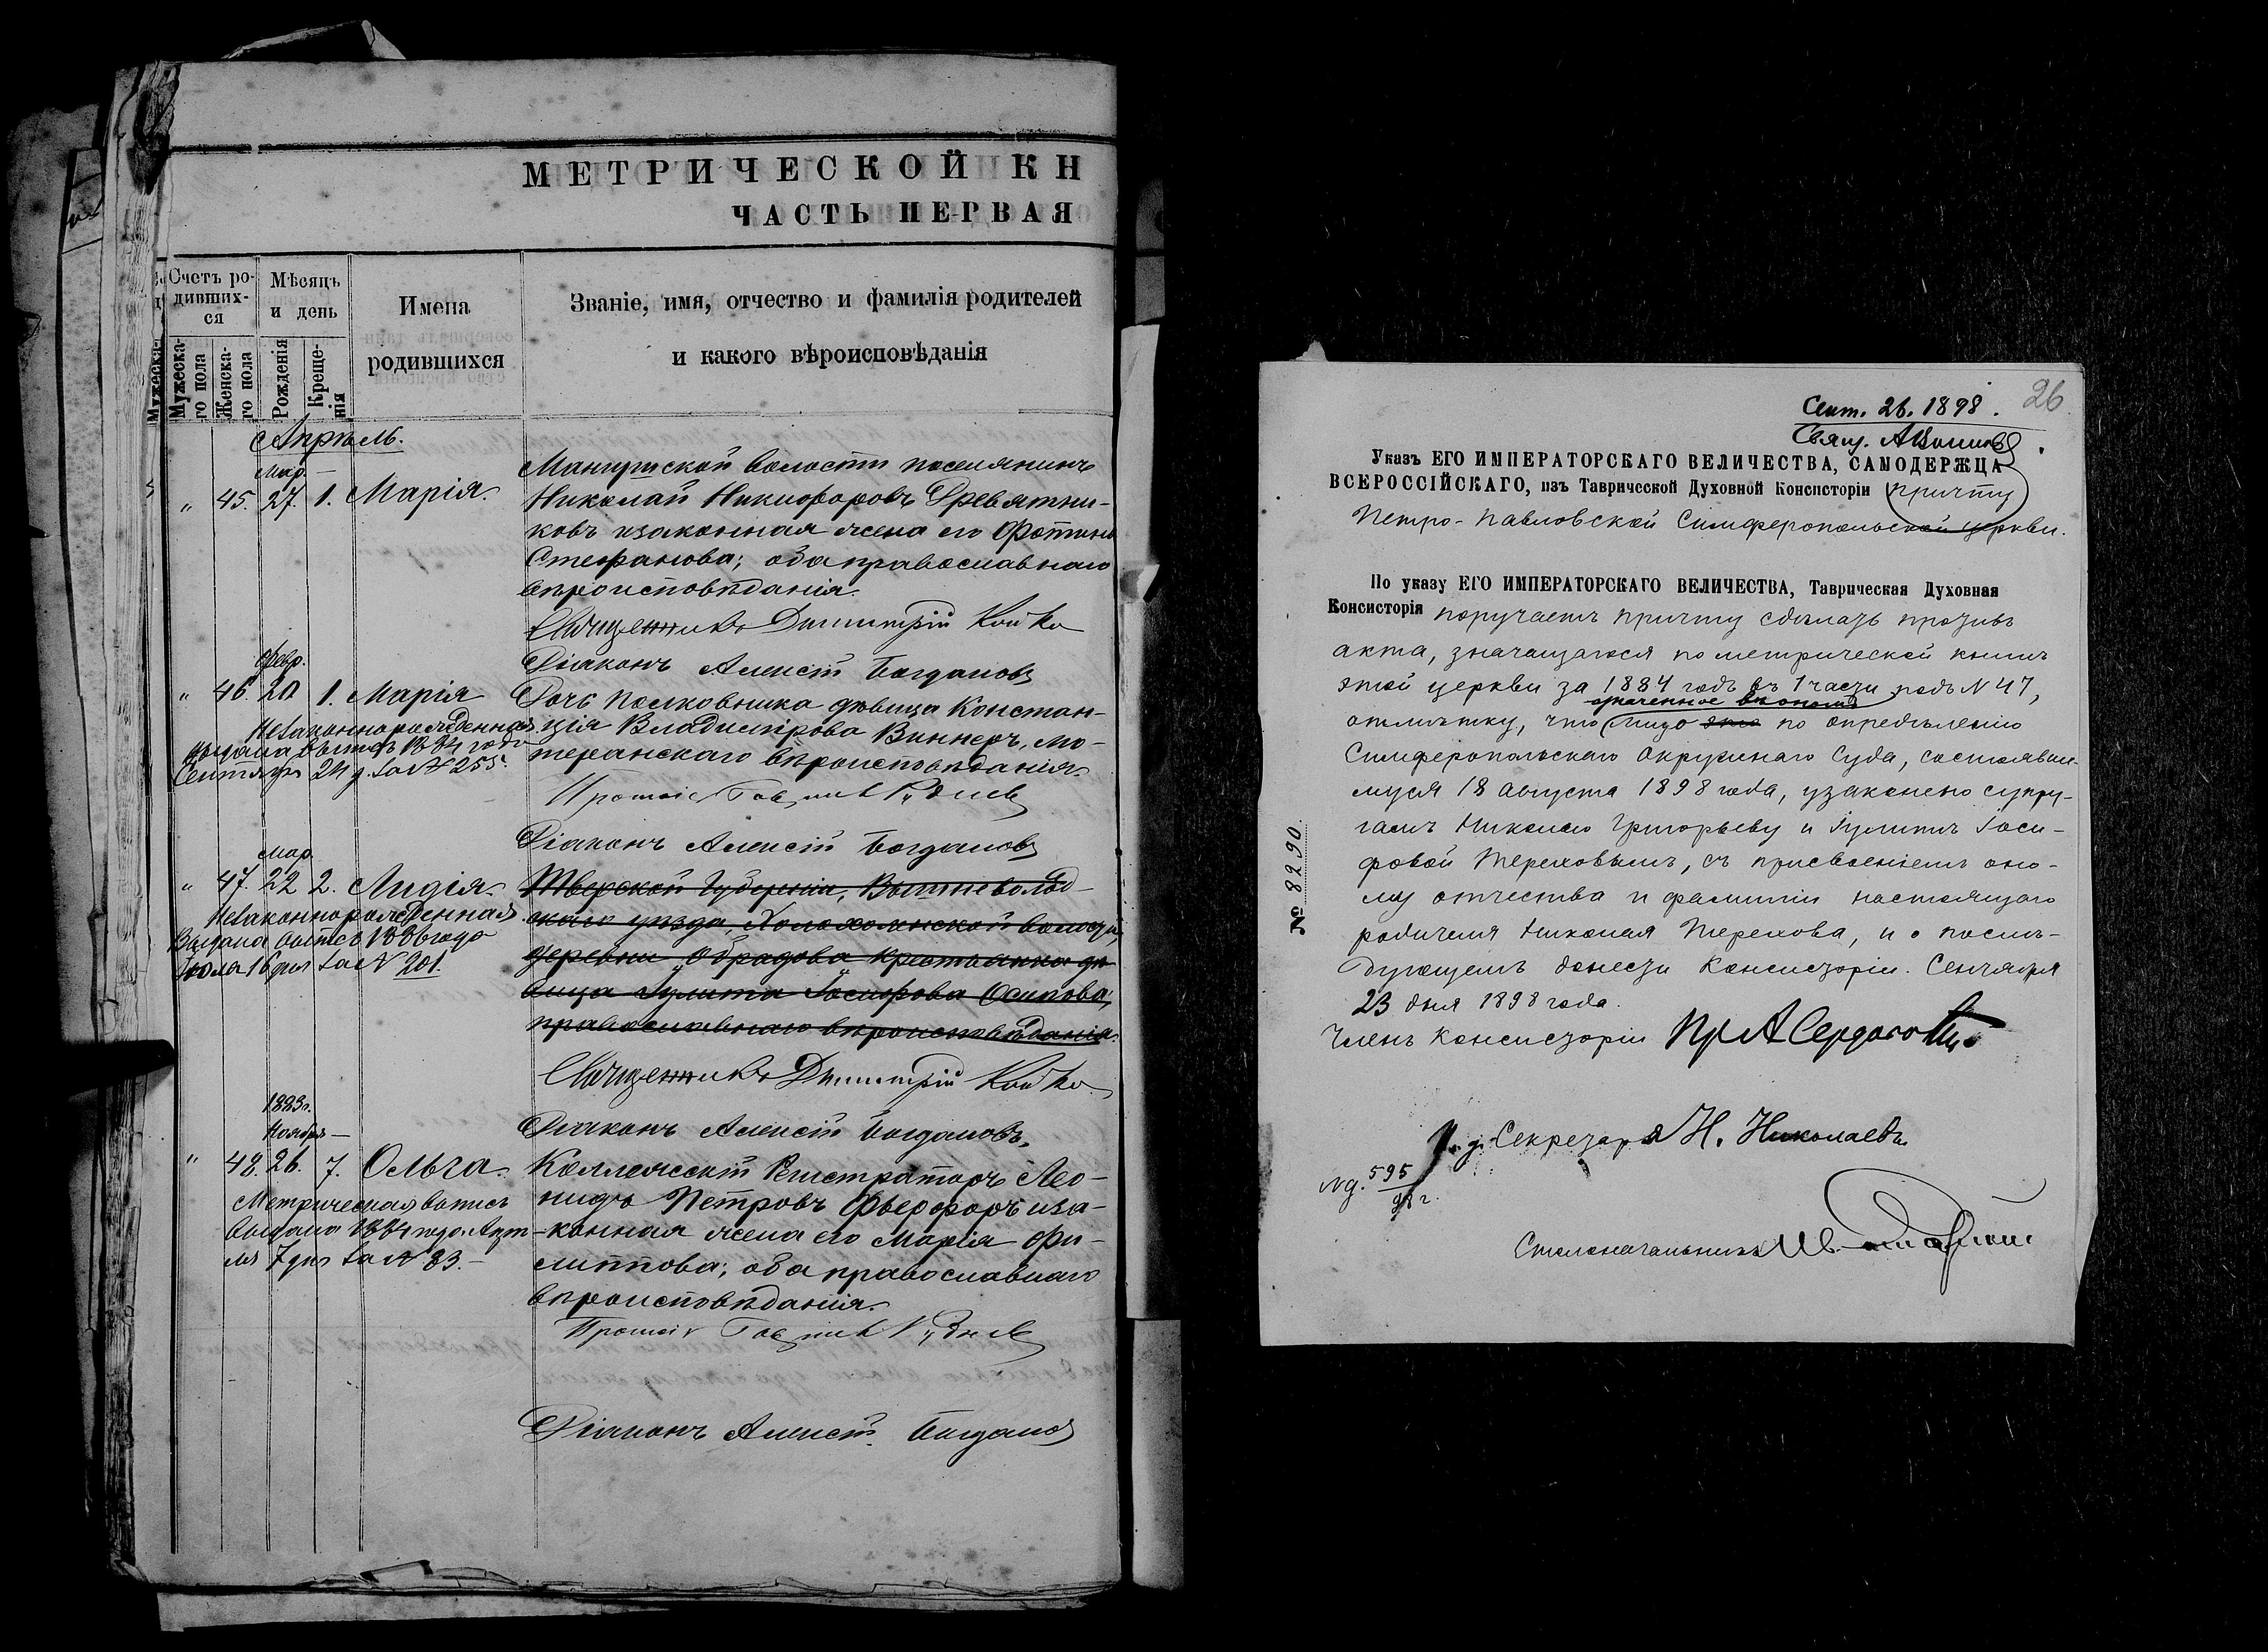 МЕТРИЧЕСКОЙ КН
ЧАСТЬ ПЕРВАЯ
Счетъ ро-
дивших-
ся
Мѣсяцъ
и день
Имена
родившихся
Званіе, имя, отчество и фамилія родителей
и какого вѣроисповѣданія
Мужеска-
го пола
Женска-
го пола
Рожденія
Креще-
нія
Апрѣль.
Мар.
" 45. 27. 1. Марія.
Мангушской волости поселянинъ
Николай Никифоровъ Древятни-
ковъ и законная жена его Фотинія
Стефанова; оба православнаго
вѣроисповѣданія.
Священникъ Димитрій Койко
Діаконъ Алексій Богдановъ
Февр.
" 46. 20 1. Марія
Незаконнорожденная
выдана выпись 1884 года
Сентября 24 д. за № 255.
Дочь полковника дѣвица Констан-
ція Владимірова Виннеръ, лю-
теранскаго вѣроисповѣданія.
Діаконъ Алексій Богдановъ
Мар.
" 47. 22 2. Лидія.
Незаконнорожденная.
Выдана выпись 1886 года
Іюля 16 дня за № 201.
Тверской Губерніи, Вышневолод-
скаго уѣзда, Холохоленской волости,
деревни "Обрадова" крестьянка дѣ-
вица Іулита Іосифова Осипова;
православнаго вѣроисповѣданія.
Священникъ Димитрій Койко
Діаконъ Алексій Богдановъ.
1883г.
Ноября
" 48. 26. 7. Ольга.
Метрическая выпись
выдана 1884 года Апрѣ-
ля 7 дня за № 83.
Коллежскій Регистраторъ Лео-
нидъ Петровъ Фьерфоръ и за-
конная жена его Марія Фи-
липпова; оба православнаго
вѣроисповѣданія.
Діаконъ Алексій Богдановъ
26
Сент. 26. 1898.
Свящ.
Указъ ЕГО ИМПЕРАТОРСКАГО ВЕЛИЧЕСТВА, САМОДЕРЖЦА
ВСЕРОССІЙСКАГО, изъ Таврической Духовной Консисторіи причту
Петро-Павловской Симферопольской церкви.
По указу ЕГО ИМПЕРАТОРСКАГО ВЕЛИЧЕСТВА, Таврическая Духовная
Консисторія поручаетъ причту сдѣлать противъ
акта, значащагося по метрической книгѣ
этой церкви за 1884 годъ въ 1 части подъ № 47,
означенное въ ономъ
отмѣтку, что лицо это по опредѣленію
Симферопольскаго Окружнаго Суда, состоявше-
муся 18 августа 1898 года, узаконено супру-
гамъ Николаю Григорьеву и Іулитѣ Іоси-
фовой Тереховымъ, съ присвоеніемъ оно-
му отчества и фамиліи настоящаго
родителя Николая Терехова, и о послѣ-
дующемъ донести Консисторіи. Сентября
23 дня 1898 года.
№ 8290.
Членъ Консисторіи
И. д. Секретаря Н. Николаевъ
№ д. 595
98 г.
Столоначальникъ